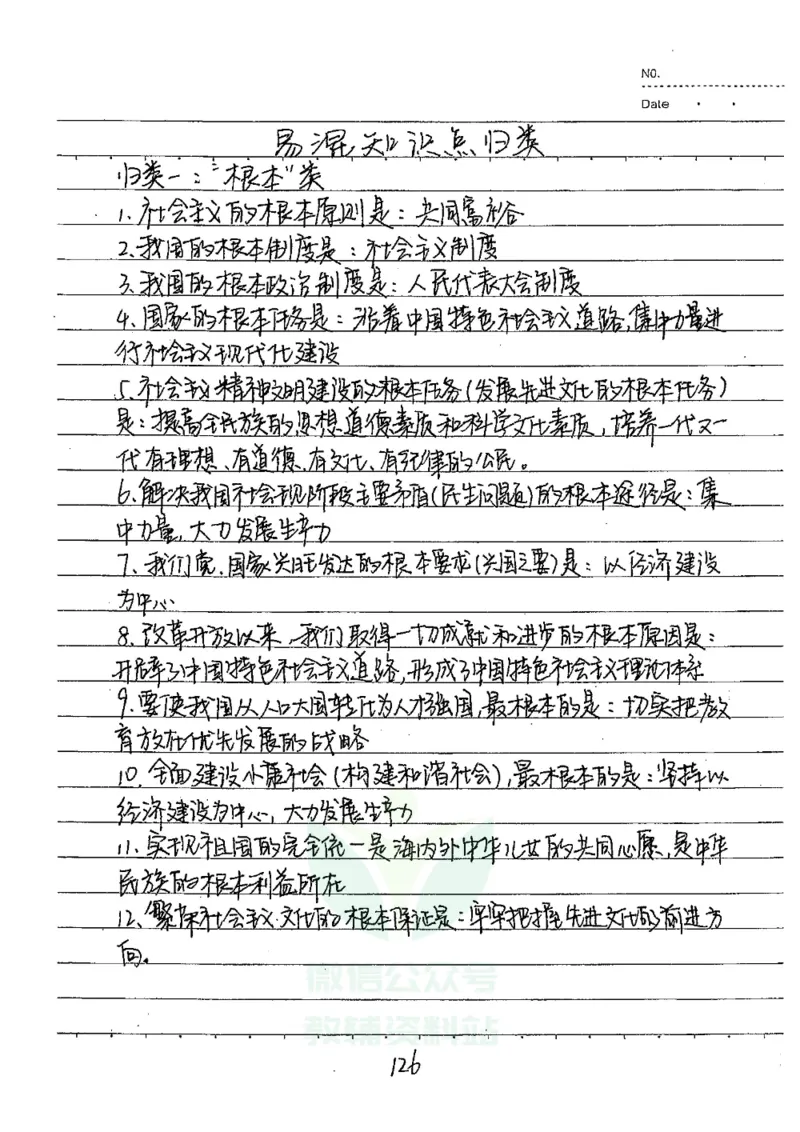 NO.
Date
易混知识点归类
归类一：“根本”类
1.社会主义的根本原则是：共同富裕
2.我国的根本制度是：社会主义制度
3.我国的根本政治制度是：人民代表大会制度
4.国家的根本任务是：沿着中国特色社会主义道路,集中力量进
行社会主义现代化建设
5.社会主义精神文明建设的根本任务(发展先进文化的根本任务)
是：提高全民族的思想道德素质和科学文化素质，培养一代又一
代有理想、有道德、有文化、有纪律的公民。
6.解决我国社会现阶段主要矛盾(民生问题)的根本途径是：集
中力量,大力发展生产力
7、我们党、国家兴旺发达的根本要求(兴国之要)是：以经济建设
为中心
8.改革开放以来,我们取得一切成就和进步的根本原因是：
开辟了中国特色社会主义道路,形成了中国特色社会主义理论体系
9.要使我国从人口大国转化为人才强国,最根本的是：切实把教
育放在优先发展的战略
10.全面建设小康社会(构建和谐社会),最根本的是：坚持以
经济建设为中心，大力发展生产力
11.实现祖国的完全统一是海内外中华儿女的共同心愿,是中华
民族的根本利益所在
12、繁荣社会主义文化的根本保证是：牢牢把握先进文化的前进方
向。
微信公众号
教辅资料站
126